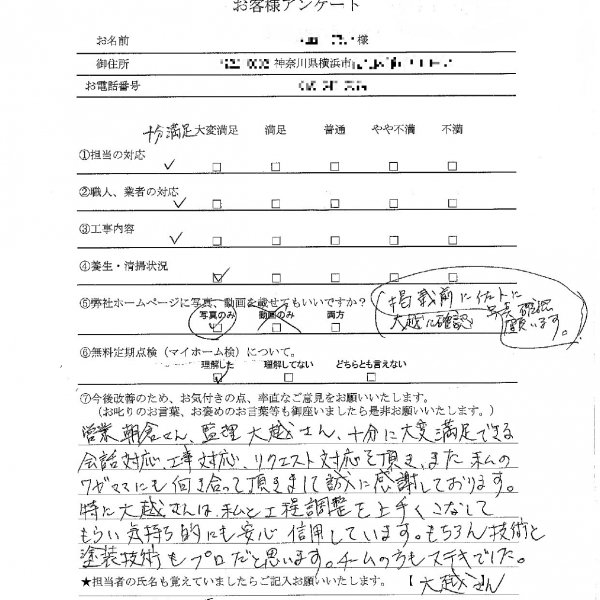 お客様アンケート
お名前 様
御住所 神奈川県横浜市
お電話番号
十分満足 大変満足 満足 普通 やや不満 不満
①担当の対応
②職人、業者の対応
③工事内容
④養生・清掃状況
⑤弊社ホームページに写真、動画を載せてもいいですか？
写真のみ 動画のみ 両方
掲載前に
大越に確認
願います。
⑥無料定期点検（マイホーム検）について。
理解した 理解してない どちらとも言えない
⑦今後改善のため、お気付きの点、率直なご意見をお願いいたします。
（お叱りのお言葉、お褒めのお言葉等も御座いましたら是非お願いします。）
営業 朝倉さん、監理 大越さん、十分に大変満足できる
会話対応、工事対応、リクエスト対応を頂き、また私の
ワガママにも向き合って頂きまして誠に感謝しております。
特に大越さんは私と工程調整を上手くこなして
もらい気持ち的にも安心信用しています。もちろん技術と
塗装技術もプロだと思います。チームの方もステキでした。
★担当者の氏名も覚えていましたらご記入お願いします。【 大越さん